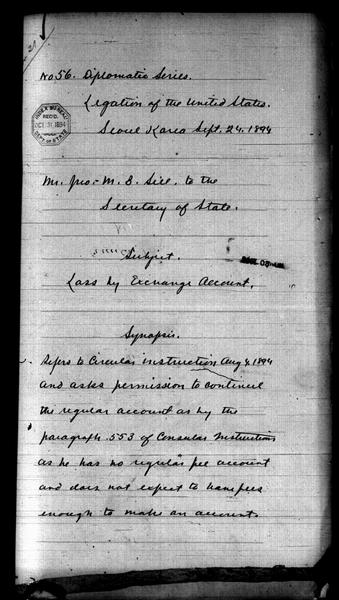 No. 56. Diplomatic Series.
Legation of the United States.
Seoul Korea Sept. 24. 1894
INDEX BUREAU
REC'D
OCT 31 1894
DEPT. OF STATE
Mr. Jno. M. B. Sill, to the
Secretary of State.
Subject.
Loss by Exchange Account.
Synopsis.
Refers to Circular instruction Aug 4, 1894
and asks permission to continue
the regular account as by the
paragraph 553 of Consular Instructions
as he has no regular fee account
and does not expect to have fees
enough to make an account.